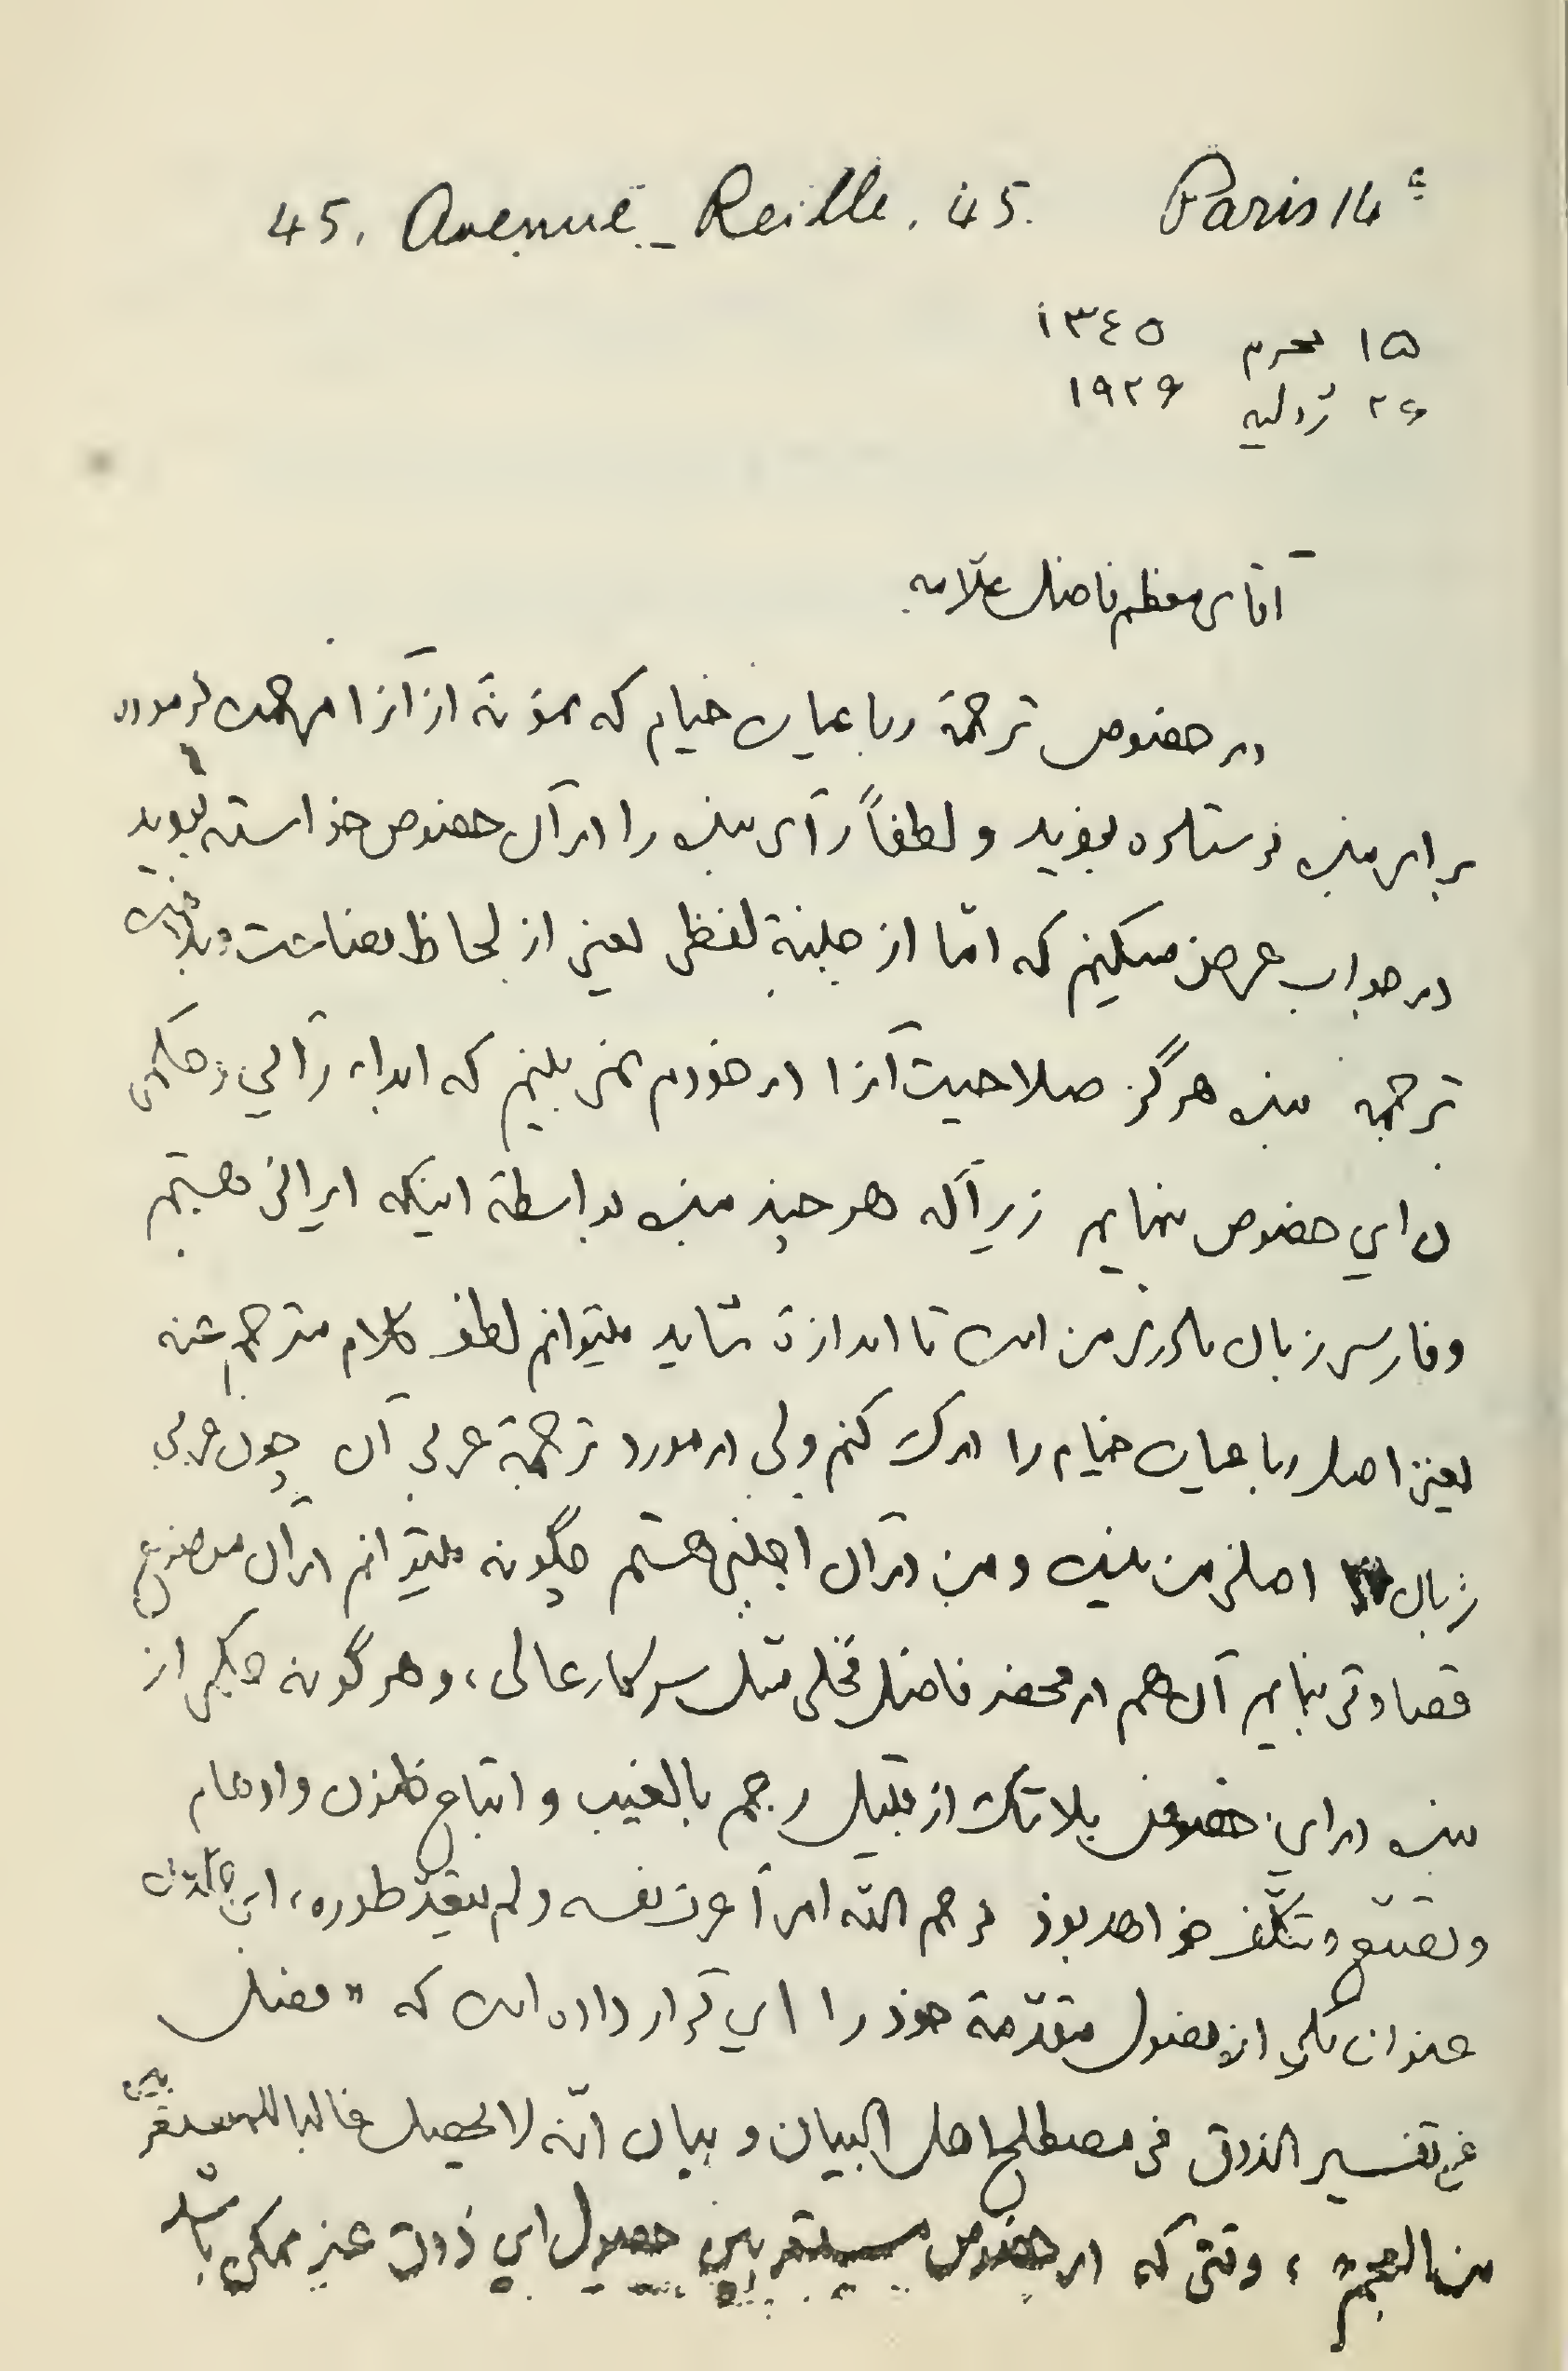 45, Avenue Reille, 45. Paris 14e
١٥ محرم ١٣٤٥
٢۶ ژولیه ١٩٢۶
آقای معظم فاضل علّامه
در خصوص ترجمهٔ رباعیات خیام که نمونهٔ از آنرا مرحمت فرموده
برای بنده فرستاده بودید و لطفاً رأی بنده را در آن خصوص خواسته بودید
در جواب عرض میکنم که امّا از جنبهٔ لفظی یعنی از لحاظ فصاحت و بلاغت
ترجمه بنده هرگز صلاحیت آنرا در خودم نمی بینم که ابداء رأیی و حکمی
در این خصوص بنمایم زیرا که هر چند بنده بواسطهٔ اینکه ایرانی هستم
و فارسی زبان مادری من است تا اندازهٔ شاید میتوانم لطف کلام مترجم عنه
یعنی اصل رباعیات خیام را درک کنم ولی در مورد ترجمهٔ عربی آن چون عربی
زبان اصلی من نیست و من در آن اجنبی هستم چگونه میتوانم در آن موضوع
قضاوتی بنمایم آن هم در محضر فاضل فحلی مثل سرکار عالی، و هر گونه حکمی از
بنده در این خصوص بلا شک از قبیل رجم بالغیب و اتباع ظنون و اوهام
و تصنّع و تکلّف خواهد بود فرحم الله امرأ عرف نفسه و لم یتعدّ طوره، ابن خلدون
عنوان یکی از فصول مقدّمهٔ خود را این قرار داده است که «فصل
فی تفسیر الذوق فی مصطلح اهل البیان و بیان انّه لا یحصل غالبا للمستعربین
من العجم»، وقتی که در خصوص مستعربین حصول این ذوق غیر ممکن باشد